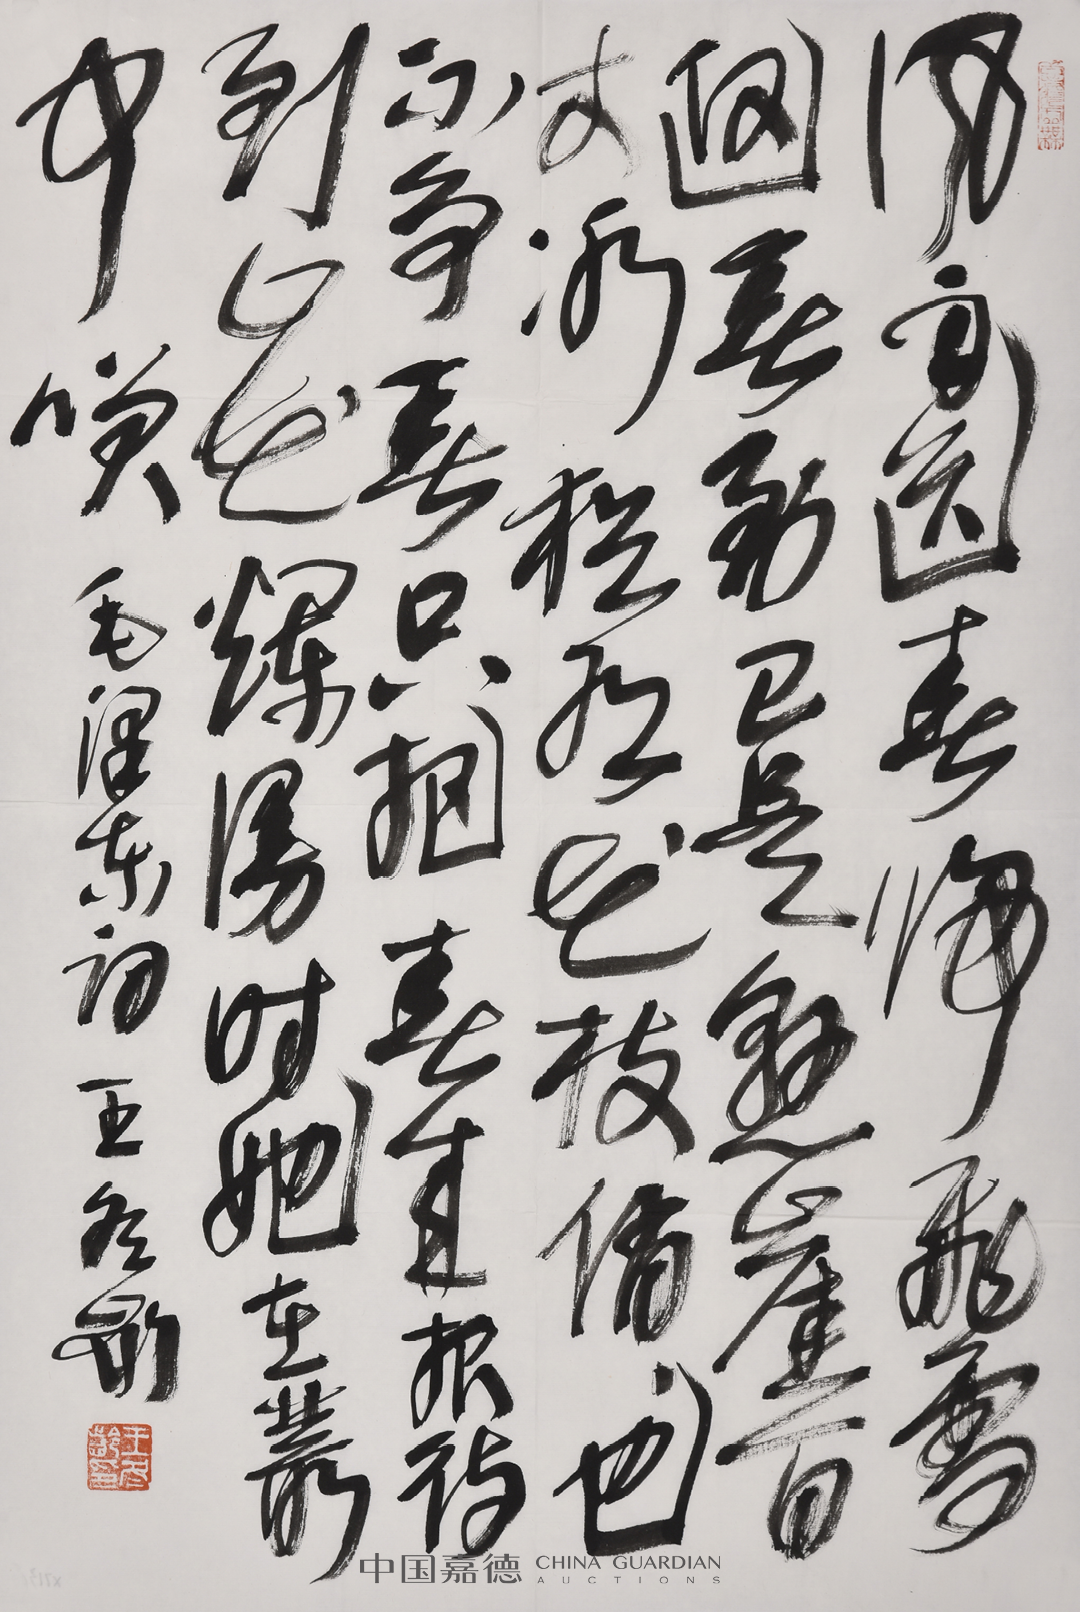 风雨送春归飞雪
迎春到已是悬崖百
丈冰犹有花枝俏也
不争春只把春来报待
到山花烂漫时她在丛
中笑 毛泽东词 王冬龄
王冬齡印
中国嘉德 CHINA GUARDIAN AUCTIONS